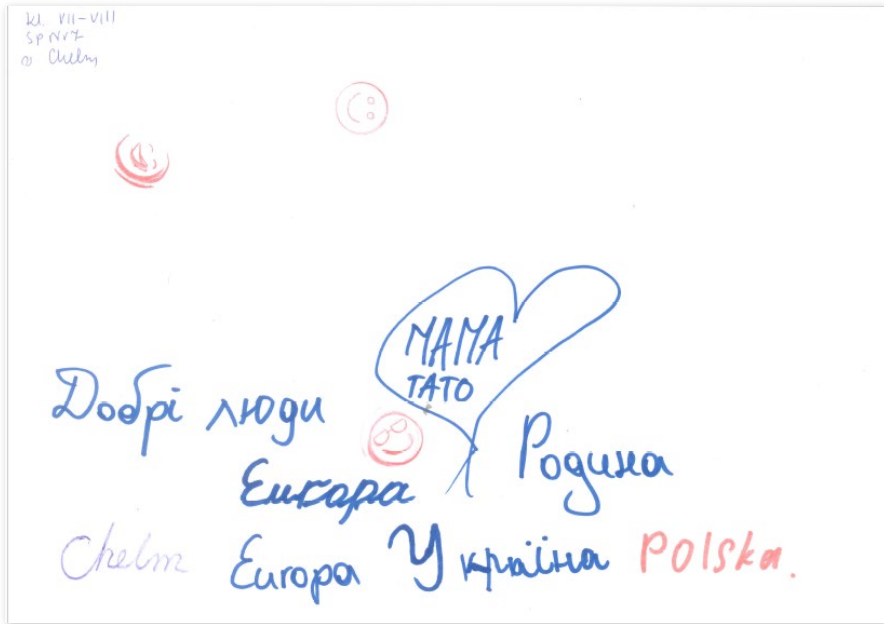 kl. VII-VIII
SP Nr 7
w Chełm
МАМА
ТАТО
Добрі люди
Родина
Europa
Chełm Europa Україна Polska.